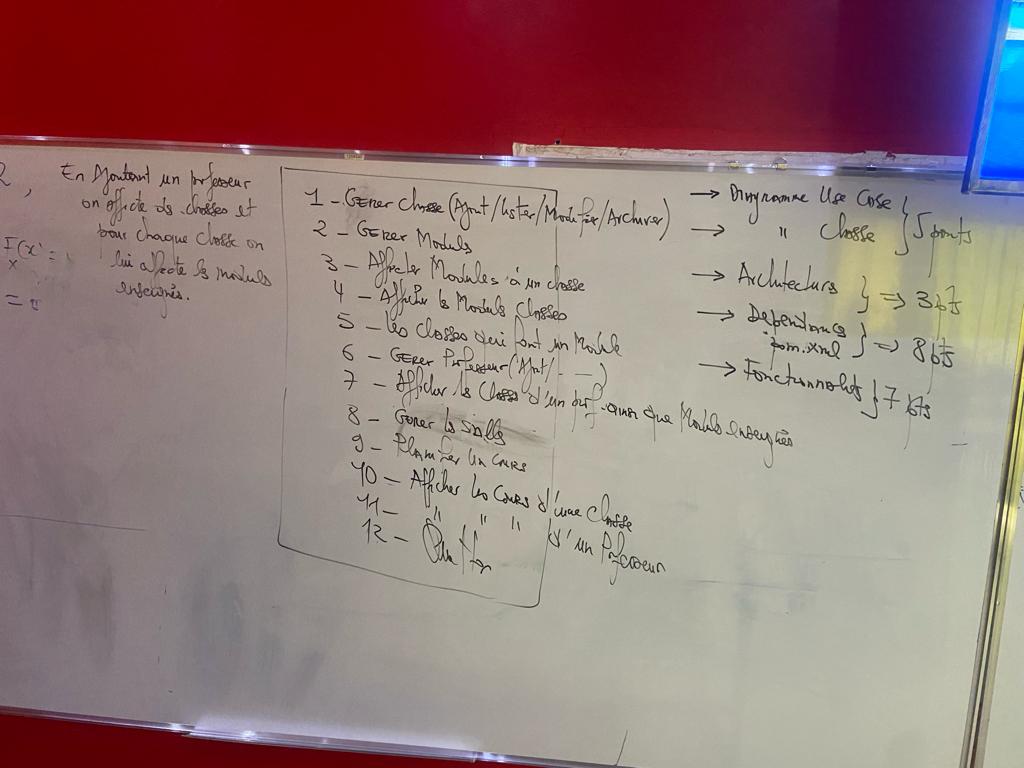 En Ajoutant un professeur
on affecte des classes et
pour chaque classe on
lui affecte les modules
enseignés.
F(x) =
x
=
1 - Gérer classe (Ajout/Lister/Modifier/Archiver)
2 - Gérer Moduls
3 - Affecter Modules à un classe
4 - Afficher les Moduls Classes
5 - Les classes qui font un Module
6 - Gérer Professeur (Ajout/ - - )
7 - Afficher les Classes d'un prof ainsi que Moduls enseignés
8 - Gérer les Salles
9 - Planifier un cours
10 - Afficher les Cours d'une Classe
11 - " " " d'un Professeur
12 - Quitter
→ Diagramme Use Case
→ " Classe } 5 points
→ Architecturs } => 3 pts
→ Dependances
pom.xml } => 8 pts
→ Fonctionnalités } 7 pts